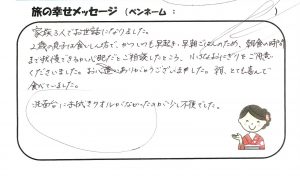 旅の幸せメッセージ （ペンネーム ： ）
家族3人でお世話になりました。
2歳の息子は食いしん坊で、かついつも早起き・早朝ごはんのため、朝食の時間
まで我慢できるか心配だとご相談したところ、小さなおにぎりをご用意
くださいました。お心遣いありがとうございました。朝、とても喜んで
食べていました。
洗面台に手拭きタオルがなかったのが少し不便でした。